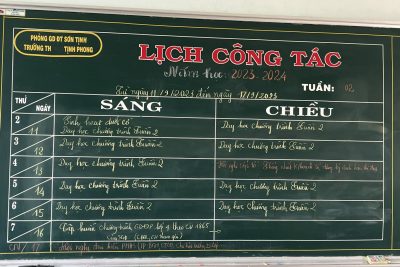 PHÒNG GD ĐT SƠN TỊNH
TRƯỜNG TH TỊNH PHONG
LỊCH CÔNG TÁC
Năm học: 2023-2024
Từ ngày 11/9/2023 đến ngày 17/9/2023
TUẦN: 02
THỨ NGÀY
SÁNG
CHIỀU
2 11
Sinh hoạt dưới cờ
Dạy học chương trình Tuần 2
Dạy học chương trình Tuần 2
3 12
Dạy học chương trình Tuần 2
Dạy học chương trình Tuần 2
4 13
Dạy học chương trình Tuần 2
5 14
Dạy học chương trình Tuần 2
Dạy học chương trình Tuần 2
6 15
Dạy học chương trình Tuần 2
Dạy học chương trình Tuần 2
7 16
Tập huấn chương trình GDĐP lớp 4 theo CV 1865
CN/ 17